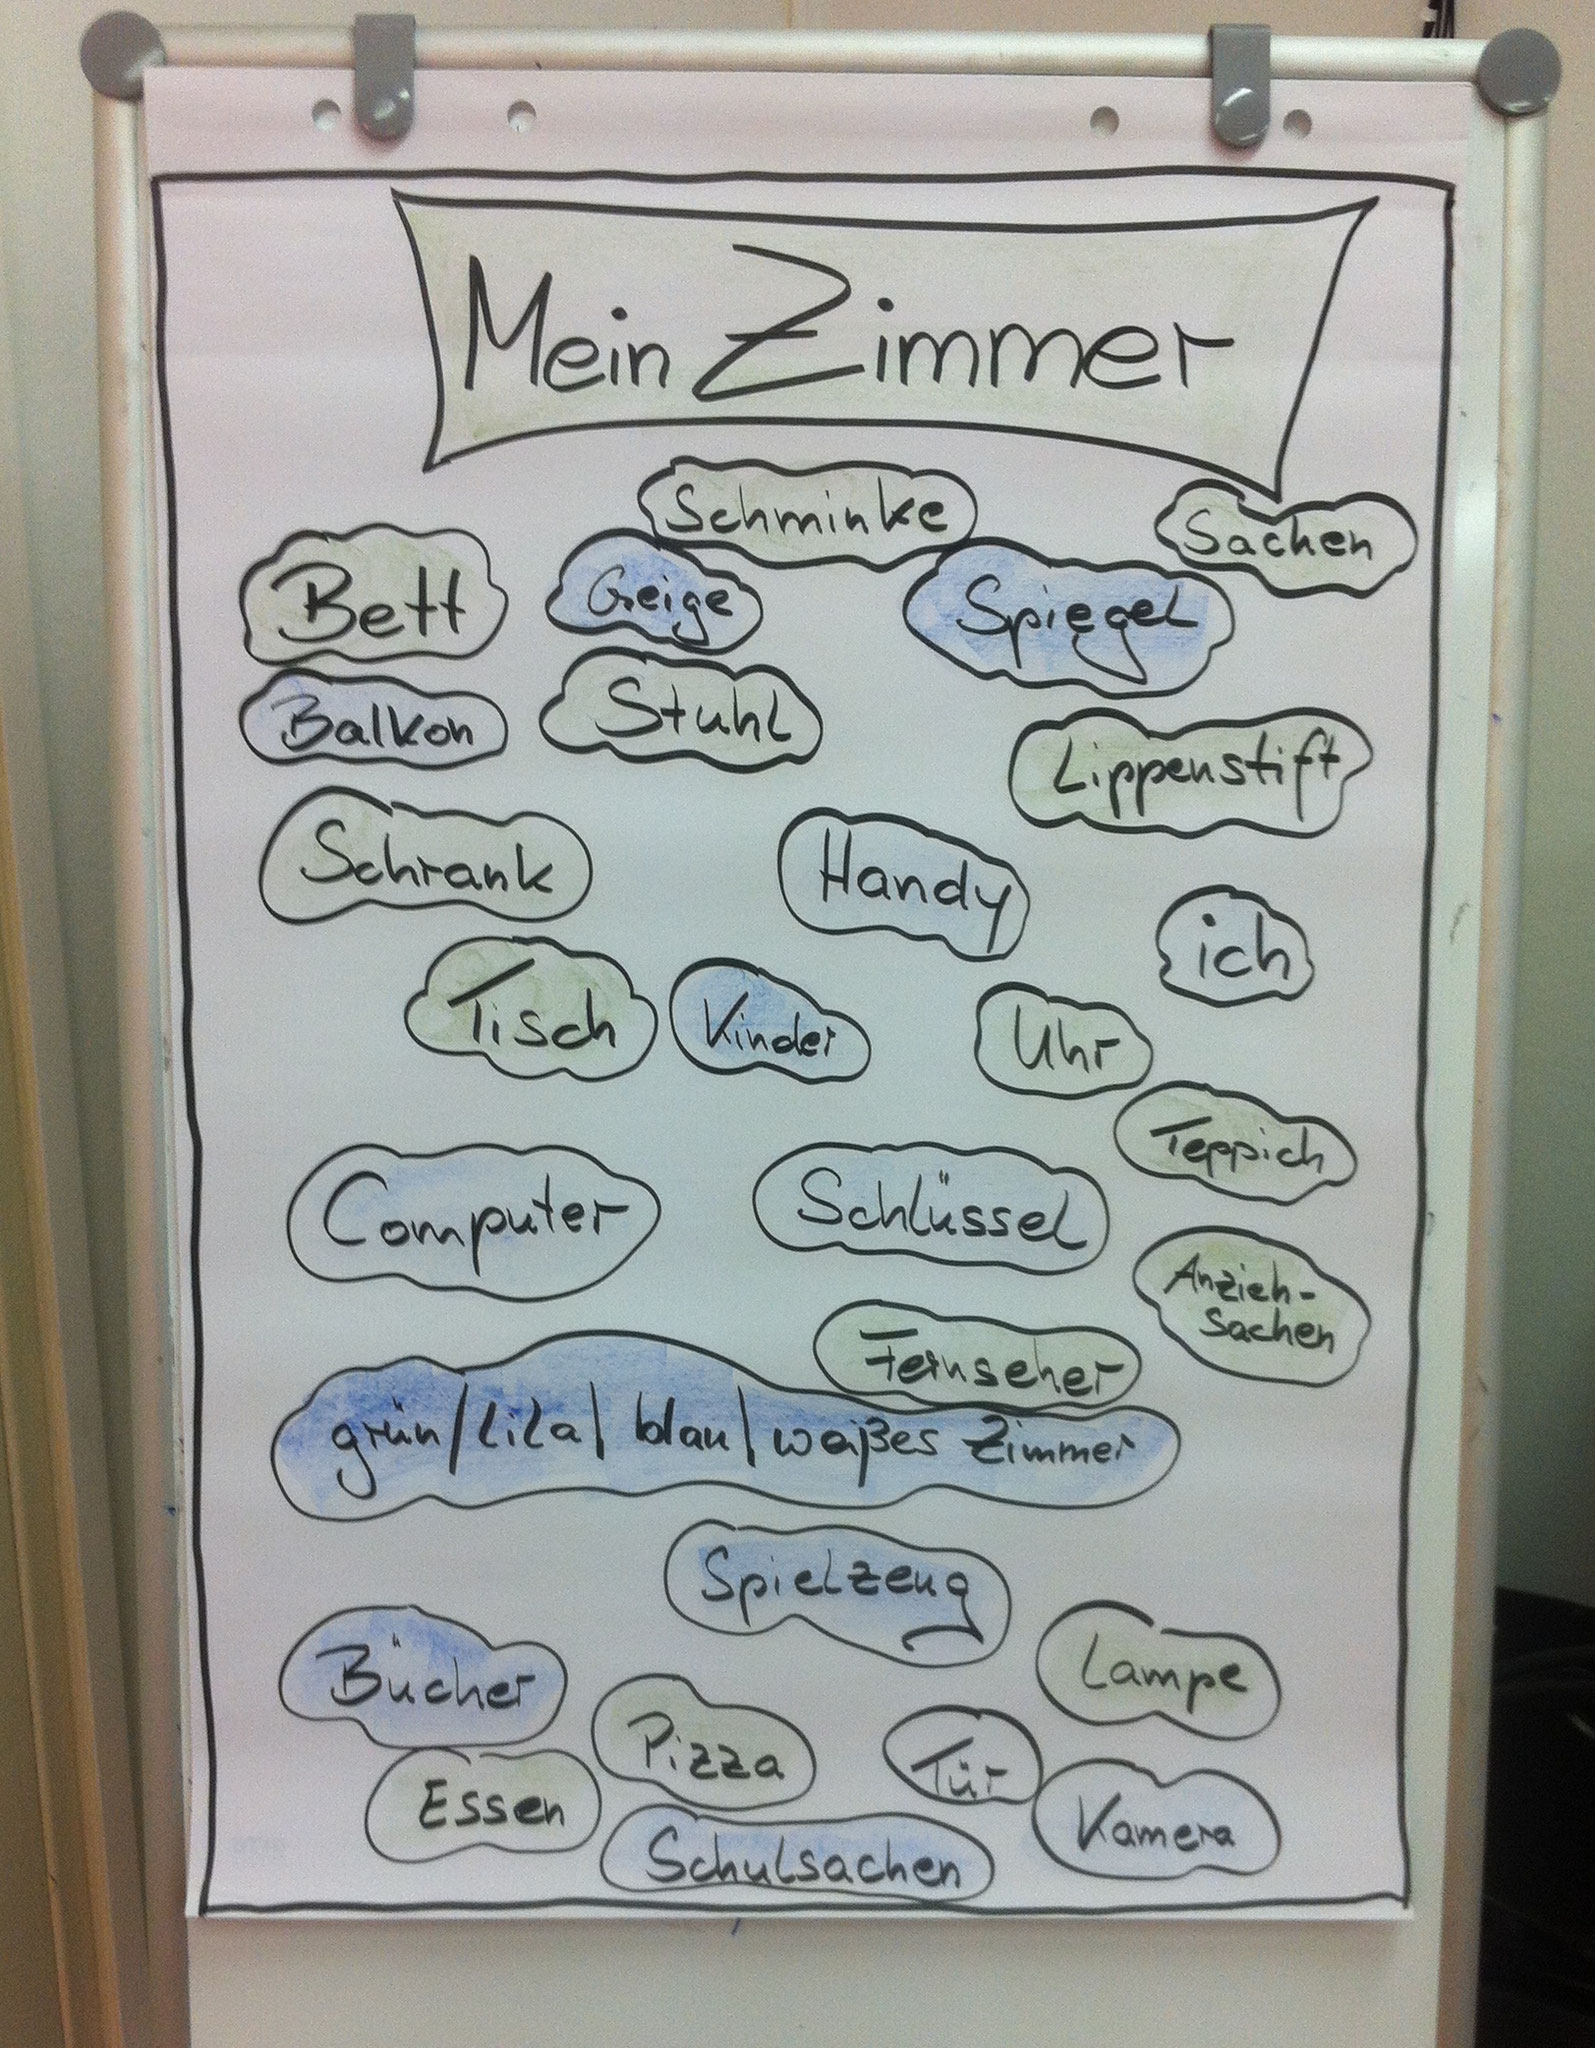 Mein Zimmer
Schminke
Sachen
Bett
Geige
Spiegel
Balkon
Stuhl
Lippenstift
Schrank
Handy
ich
Tisch
Kinder
Uhr
Teppich
Computer
Schlüssel
Anzieh-
sachen
Fernseher
grün/lila/blau/weißes Zimmer
Spielzeug
Bücher
Lampe
Pizza
Tür
Essen
Kamera
Schulsachen